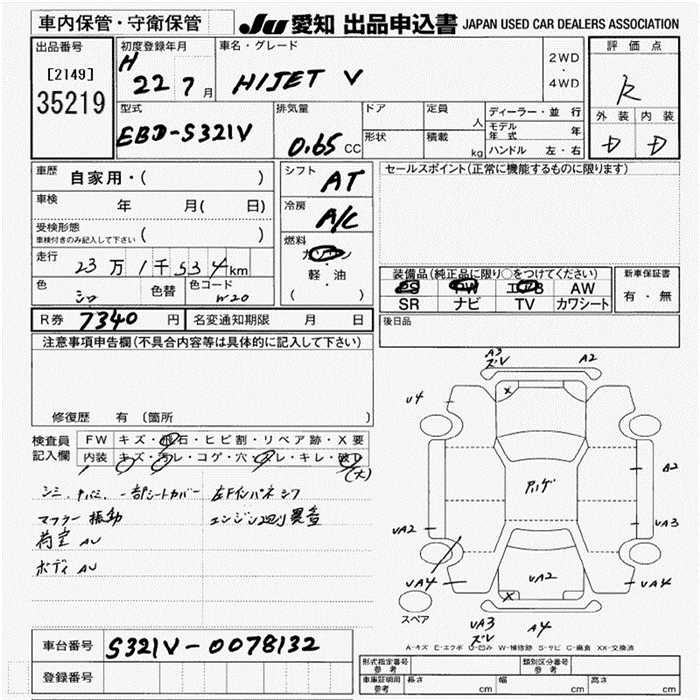 車内保管・守衛保管
JU 愛知 出品申込書 JAPAN USED CAR DEALERS ASSOCIATION
出品番号
[2149]
35219
初度登録年月
H 22 7 月
車名・グレード
HIJET V
2WD
・
4WD
評価点
R
外装 内装
D D
型式
EBD-S321V
排気量
0.65 CC
ドア
形状
定員
人
積載
kg
ディーラー・並行
モデル年式 年
ハンドル 左・右
車歴
自家用・( )
車検
年 月( 日)
受検形態
車検付きのみ記入して下さい ( )
走行
23万1千534km
色
シロ
色替
色コード
W20
シフト
AT
冷房
A/C
燃料
ガソリン
・
軽・油
( )
セールスポイント(正常に機能するものに限ります)
装備品(純正品に限り○をつけてください)
PS PW エアB AW
SR ナビ TV カワシート
新車保証書
有・無
R券 7340 円
名変通知期限 月 日
後日品
注意事項申告欄(不具合内容等は具体的に記入して下さい)
修復歴 有 (箇所 )
検査員
記入欄
FW キズ・飛石・ヒビ割・リペア跡・X要
内装 キズ・汚レ・コゲ・穴・スレ・キレ・破レ
(大)
一部シートカバー 左Fインパネシワ
マフラー振動 エンジン廻り異音
荷室 AU
ボディ AU
A3
ズV
A2
U4
X
A2
UA2
UA3
UA4
UA2
UA4
X
スペア
UA3
ズV
A4
A-キズ E-エクボ U-凹み W-補修跡 S-サビ C-腐食 XX-交換済
車台番号 S321V-0078132
登録番号
形式指定番号
参考
類別区分番号
参考
車庫証明用
参考
長さ cm 幅 cm 高さ cm